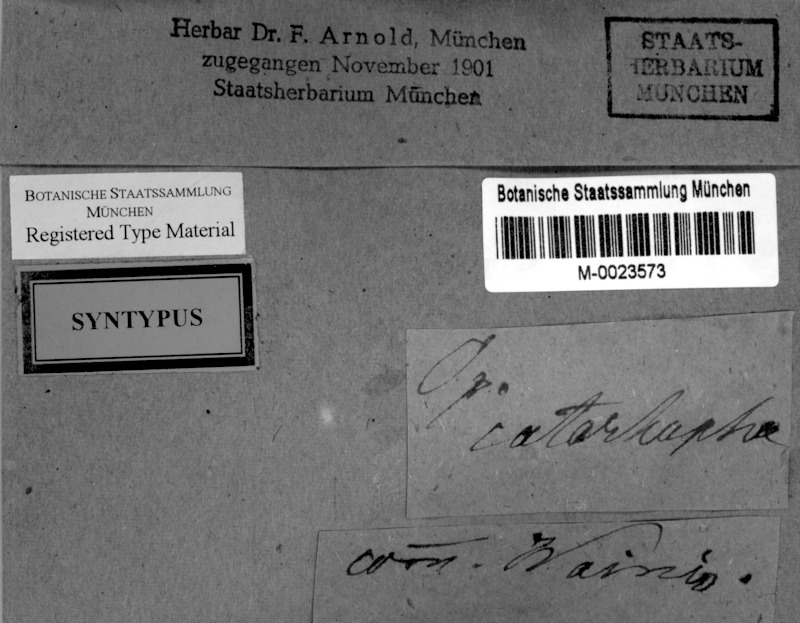 Herbar Dr. F. Arnold, München
zugegangen November 1901
Staatsherbarium München
STAATS-
HERBARIUM
MÜNCHEN
BOTANISCHE STAATSSAMMLUNG
MÜNCHEN
Registered Type Material
Botanische Staatssammlung München
M-0023573
SYNTYPUS
Op.
catarhapha
com. Wainio.